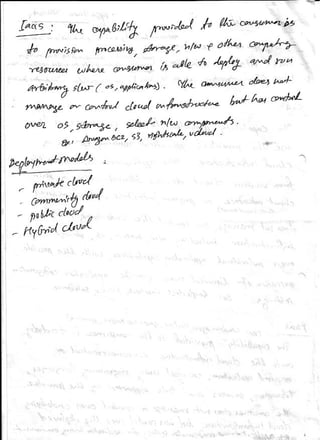 Iaas : The capability provided to the consumer is
to provision processing, storage, n/w & other computing
resources where consumer is able to deploy and run
arbitrary s/w (OS, applications). The consumer does not
manage or control cloud infrastructure but has control
over OS, storage, select n/w components.
Ex: Amazon EC2, S3, rightscale, vcloud.
Deployment models :
- private cloud
- Community cloud
- public cloud
- Hybrid cloud